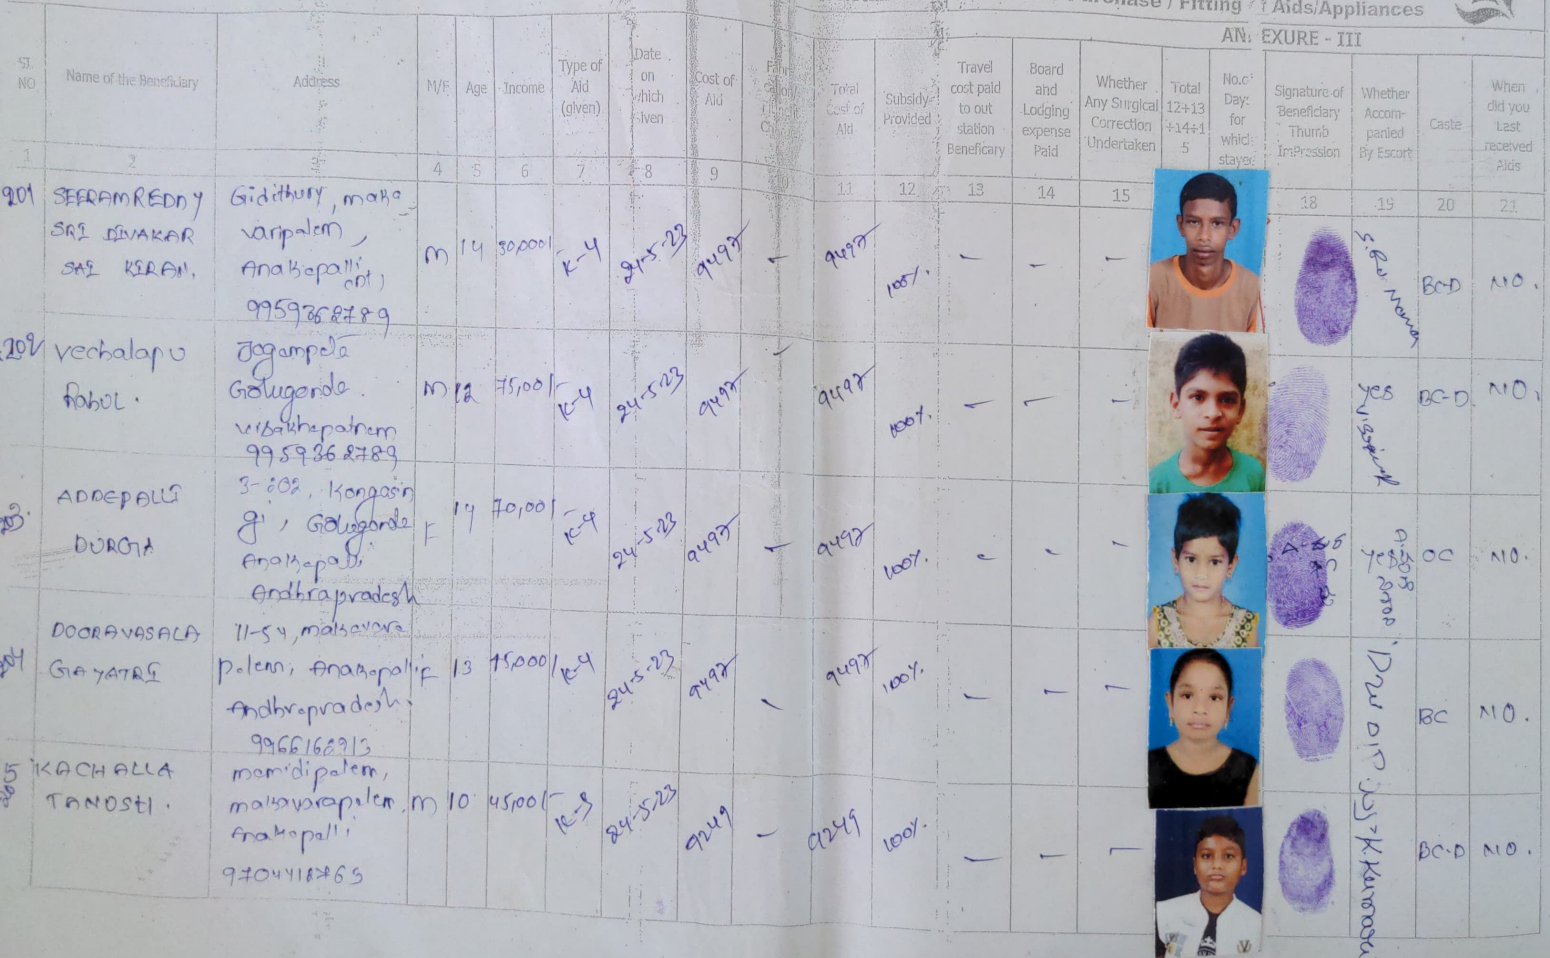 Fitting
Aids/Appliances
ANNEXURE - III
SI. NO
Name of the Beneficiary
Address
M/F
Age
Income
Type of Aid (given)
Date on which given
Cost of Aid
Total Cost of Aid
Subsidy Provided
Travel cost paid to out station Beneficary
Board and Lodging expense Paid
Whether Any Surgical Correction Undertaken
Total 12+13 +14+1 5
No.of Days for which stayed
Signature of Beneficiary Thumb ImPression
Whether Accom- panied By Escort
Caste
When did you Last received Aids
1 2 3 4 5 6 7 8 9 10 11 12 13 14 15 18 19 20 21
201 SEERAMREDDY Gidithury, maka
SRI DIVAKAR varipalem,
SAI KIRAN. Anakapalli (Dt),
M 14 30,000/- K-4 24-5-23 9497 - 9497 100% - - - BC-D NO.
9959362789
202 Vechalapu Jogampeta
Rahul. Golugonda.
visakhapatnam
M 12 75,00/- K-4 24-5-23 9497 - 9497 100% - - - yes BC-D NO.
9959362789
203. ADDEPALLI 3-202, Kongasin
gi, Golugonda
DURGA Anakapalli
Andhrapradesh
F 14 70,00/- K-4 24-5-23 9497 - 9497 100% - - - yes OC NO.
204 DOORAVASALA 11-54, makavara
GAYATRI palem, Anakapalli
Andhrapradesh.
F 13 75,000/- K-4 24-5-23 9497 - 9497 100% - - - BC NO.
9966162913
205 KACHALLA mamidipalem,
TANOSH. makavarapalem.
Anakapalli
M 10 45,00/- K-3 24-5-23 9249 - 9249 100% - - - BC-D NO.